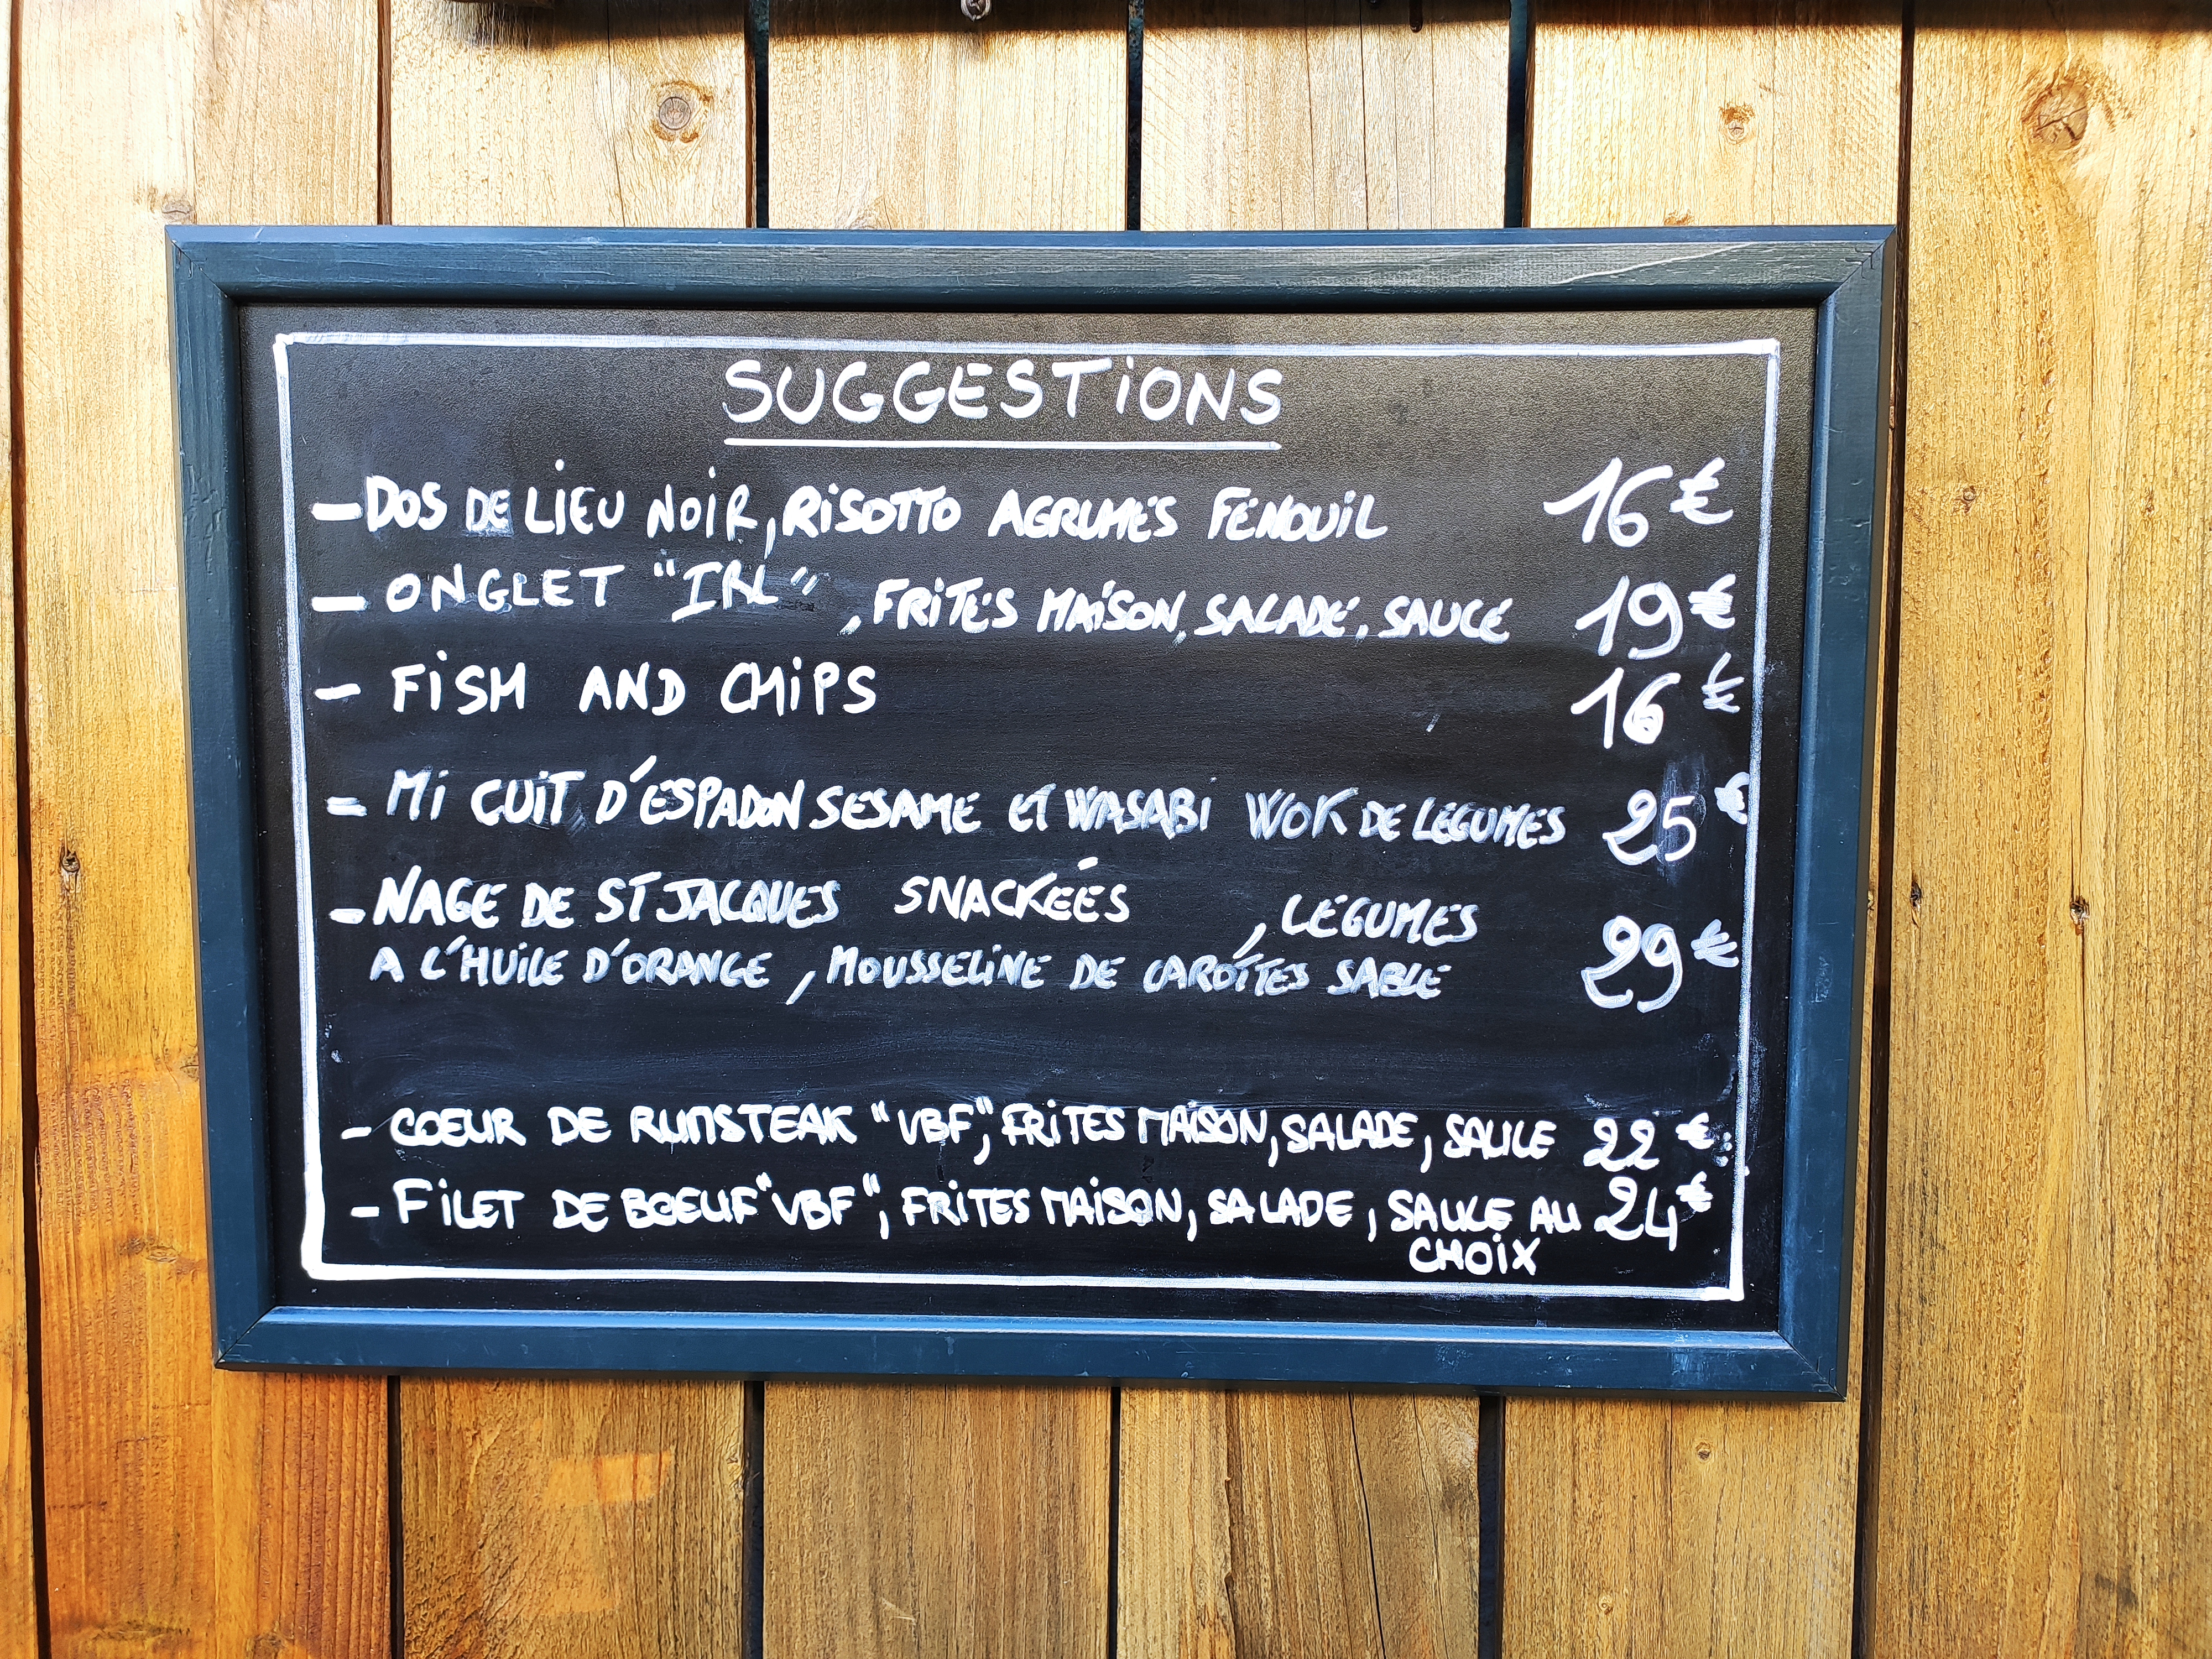 SUGGESTIONS
- DOS DE LIEU NOIR, RISOTTO AGRUMES FENOUIL 16€
- ONGLET "IRL", FRITES MAISON, SALADE, SAUCE 19€
- FISH AND CHIPS 16€
- MI CUIT D'ESPADON SESAME ET WASABI WOK DE LEGUMES 25€
- NAGE DE ST JACQUES SNACKÉES, LEGUMES
A L'HUILE D'ORANGE, MOUSSELINE DE CAROTTES SABLE 29€
- COEUR DE RUMSTEAK "VBF", FRITES MAISON, SALADE, SAUCE 22€
- FILET DE BOEUF "VBF", FRITES MAISON, SALADE, SAUCE AU 24€
CHOIX